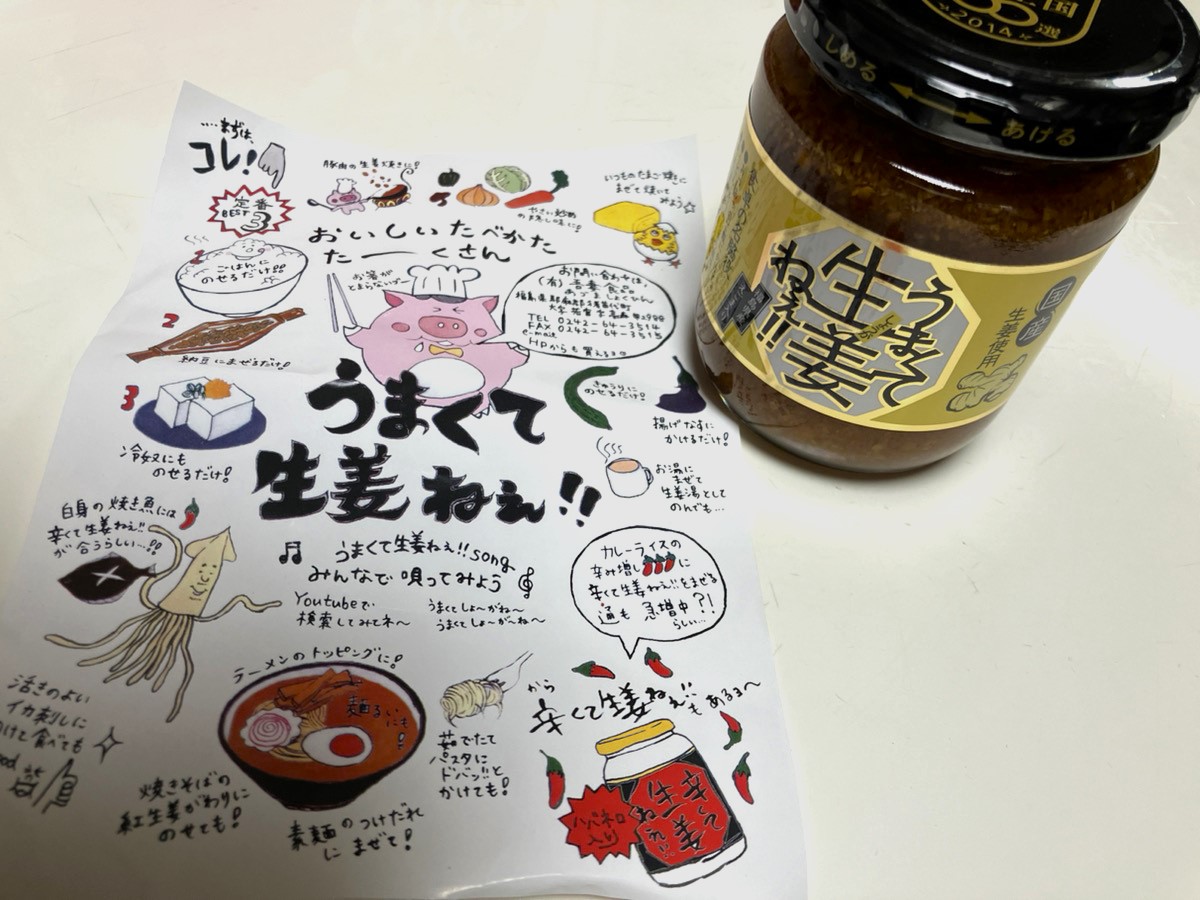 ....まずは、
コレ!
定番
BEST
3
豚肉の生姜焼きに!
やさい炒め
の隠し味に!
いつものたまご焼きに
まぜて焼いて
みよう☆
おいしいたべかた
たーーくさん
1
ごはんに
のせるだけ!!
2
納豆にまぜるだけ!
3
冷奴にも
のせるだけ!
お箸が
とまらないブー
お問い合わせは、
(有)吾妻食品
あづましょくひん
福島県耶麻郡猪苗代町
TEL 0242-64-3514
FAX 0242-64-3515
e-mail
HPからも買えるヨ
うまくて
生姜ねぇ!!
きゅうりに
のせるだけ!
揚げなすに
かけるだけ!
お湯に
まぜて
生姜湯として
のんでも…
白身の焼き魚には
辛くて生姜ねぇ!!
が合うらしい…!!
♫ うまくて生姜ねぇ!!song
みんなで唄ってみよう
Youtubeで
検索してみてネ〜
うまくてしょ〜がね〜
うまくてしょ〜が〜ね〜
カレーライスの
辛み増しに
辛くて生姜ねぇ!!をまぜる
通も急増中?!
らしい…
活きのよい
イカ刺しに
つけて食べても
ラーメンのトッピングに!
麺るい
にも!
焼きそばの
紅生姜がわりに
のせても!
素麺のつけだれ
にまぜて!
茹でたて
パスタに
ドバッ!!と
かけても!
から
辛くて生姜ねぇ!!もあるヨ〜
ハバネロ
入り
辛くて
生姜
ねぇ!!
2014
選
しめる
あける
うまくて
生姜
しょうが
ねぇ!!
国産
生姜使用